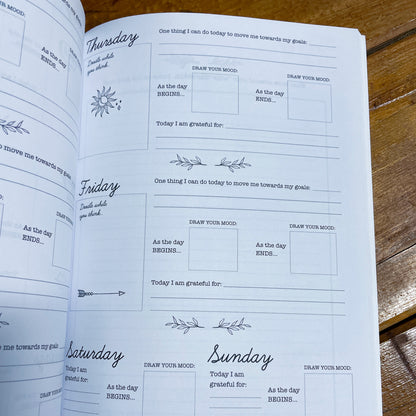 to move me towards my goals:
As the day
ENDS...
to move me towards my goals:
As the day
ENDS...
me towards my goals:
As the day
ENDS...
Thursday
One thing I can do today to move me towards my goals:
Doodle while
you think.
DRAW YOUR MOOD:
As the day
BEGINS...
As the day
ENDS...
Today I am grateful for:
Friday
One thing I can do today to move me towards my goals:
Doodle while
you think.
DRAW YOUR MOOD:
DRAW YOUR MOOD:
As the day
BEGINS...
As the day
ENDS...
Today I am grateful for:
Saturday
Sunday
Today I am
grateful for:
DRAW YOUR MOOD:
As the day
BEGINS...
Today I am
grateful for:
DRAW YOUR MOOD:
As the day
BEGINS...